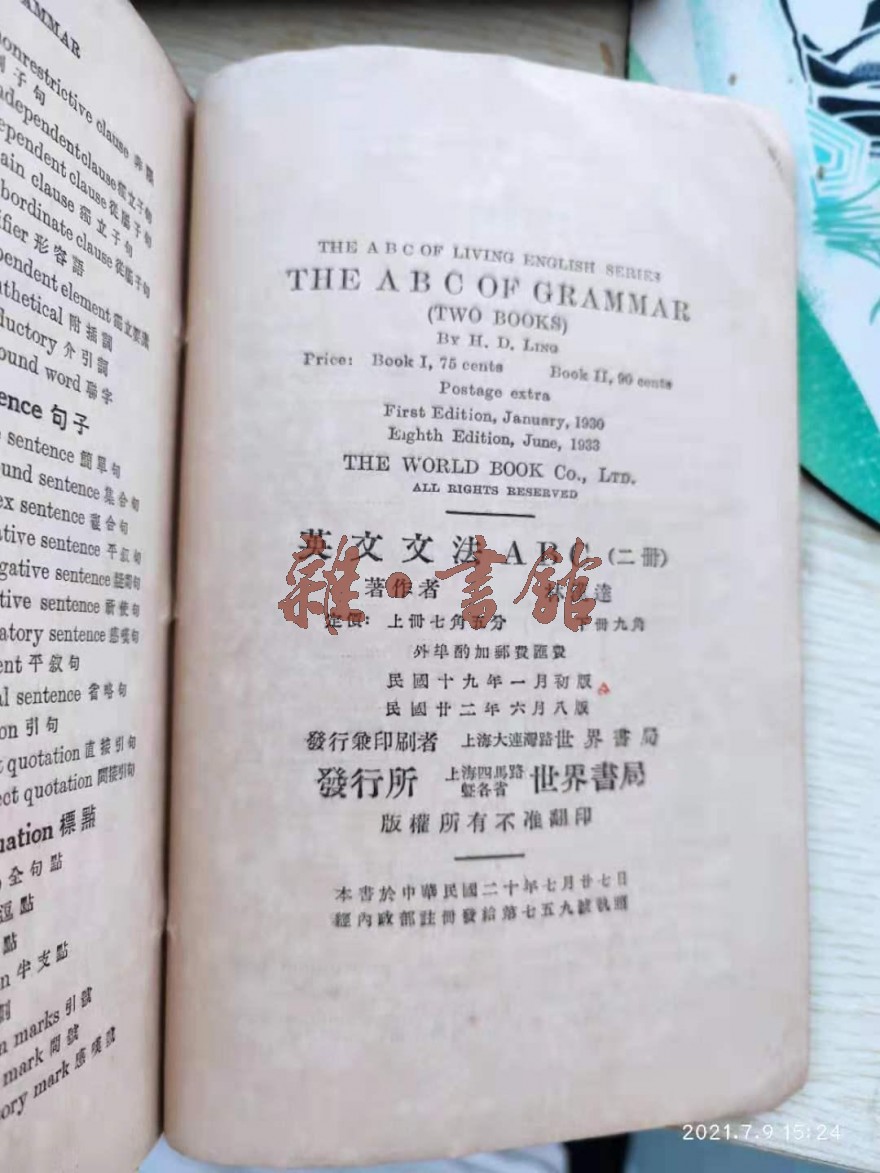 AMMAR
nonrestrictive clause
子句
independent clause 獨立子句
dependent clause 從屬子句
main clause 獨立子句
subordinate clause 從屬子句
modifier 形容語
independent element 獨立要素
parenthetical 附插詞
introductory 介引詞
compound word 聯字
sentence 句子
sentence 簡單句
compound sentence 集合句
complex sentence 複合句
declarative sentence 平敘句
negative sentence
imperative sentence 祈使句
exclamatory sentence 感嘆句
ent 平敘句
elliptical sentence 省略句
quotation 引句
direct quotation 直接引句
indirect quotation 間接引句
Punctuation 標點
全句點
逗點
點
n 半支點
quotation marks 引號
mark 問號
exclamatory mark 感嘆號
THE A B C OF LIVING ENGLISH SERIES
THE A B C OF GRAMMAR
(TWO BOOKS)
BY H. D. LING
Price: Book I, 75 cents Book II, 90 cents
Postage extra
First Edition, January, 1930
Eighth Edition, June, 1933
THE WORLD BOOK Co., LTD.
ALL RIGHTS RESERVED
英文文法ABC(二冊)
著作者 林漢達
定價: 上冊七角五分 下冊九角
外埠酌加郵費匯費
民國十九年一月初版
民國廿二年六月八版
發行兼印刷者 上海大連灣路世界書局
發行所 上海四馬路暨各省 世界書局
版權所有不准翻印
本書於中華民國二十年七月廿七日
經內政部註冊發給第七五九號執照
雜·書館
2021.7.9 15:24